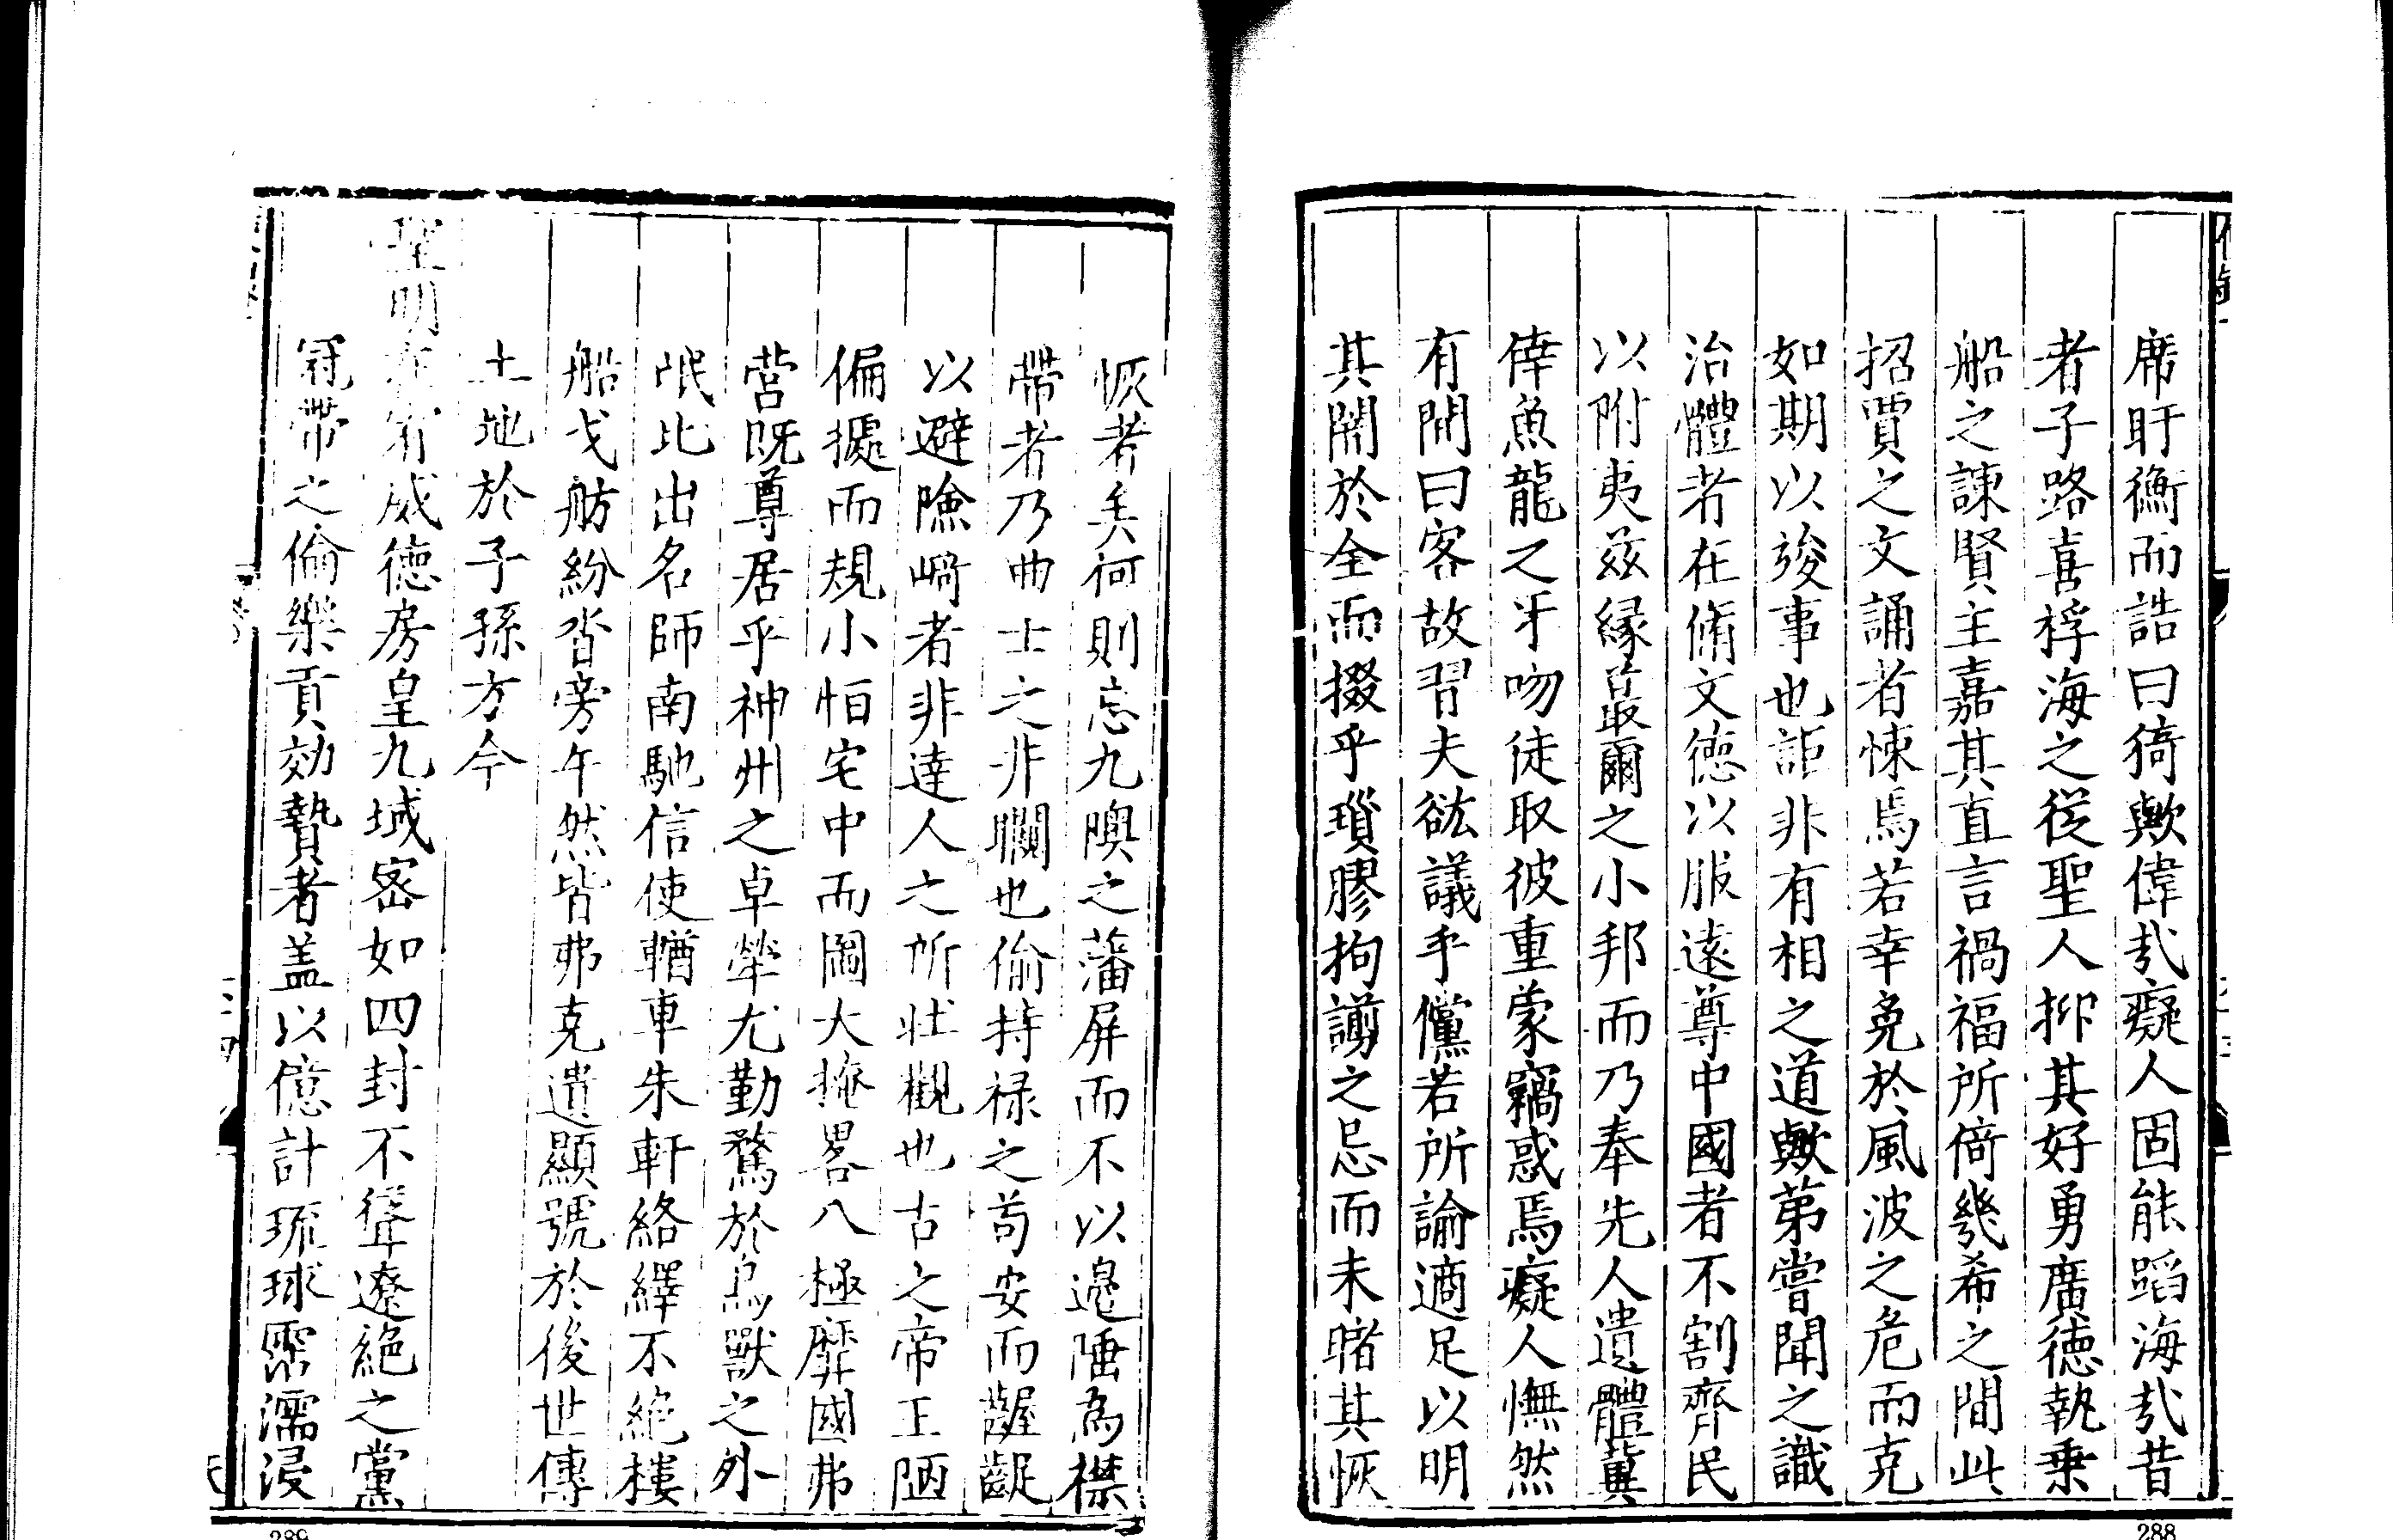 席盱衡而誥曰猗歟偉㢤癡人固能蹈海㢤昔
者子路喜桴海之從聖人抑其好勇廣徳執乗
船之諌賢主嘉其直言禍福所倚幾希之間此
招賈之文誦者悚焉若幸免於風波之危而克
如期以竣事也詎非有相之道歟苐嘗聞之識
治體者在脩文徳以服遠尊中國者不割齊民
以附夷兹縁蕞爾之小邦而乃奉先人遺體冀
倖魚龍之牙吻徒取彼重蒙竊惑焉癡人憮然
有間曰客故習夫谹議乎儻若所諭適足以明
其闇於全而掇乎瑣膠拘謭之忌而未睹其恢
恢者矣何則忘九隩之藩屏而不以邉陲為襟
帶者乃曲士之非矙也偷持禄之苟安而齷齪
以避險﨑者非達人之所壯觀也古之帝王陋
偏據而規小恒宅中而圖大掩畧八極靡國弗
营既尊居乎神州之卓犖尤勤騖於鳥獸之外
氓比出名師南馳信使輶車朱軒絡繹不絶樓
船戈舫紛沓旁午然皆弗克遺顯號於後世傳
土地於子孫方今
聖明在宥威徳房皇九域宻如四封不聳遼絶之黨
冠帶之倫樂貢効贄者盖以億計琉球霑濡浸
288
289